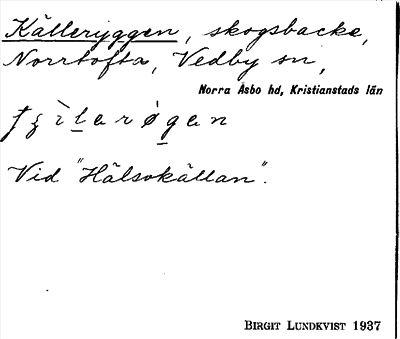 Källeryggen, skogsbacke,
Norrtofta, Vedby sn,
Norra Åsbo hd, Kristianstads län
Vid "Hälsokällan".
BIRGIT LUNDKVIST 1937